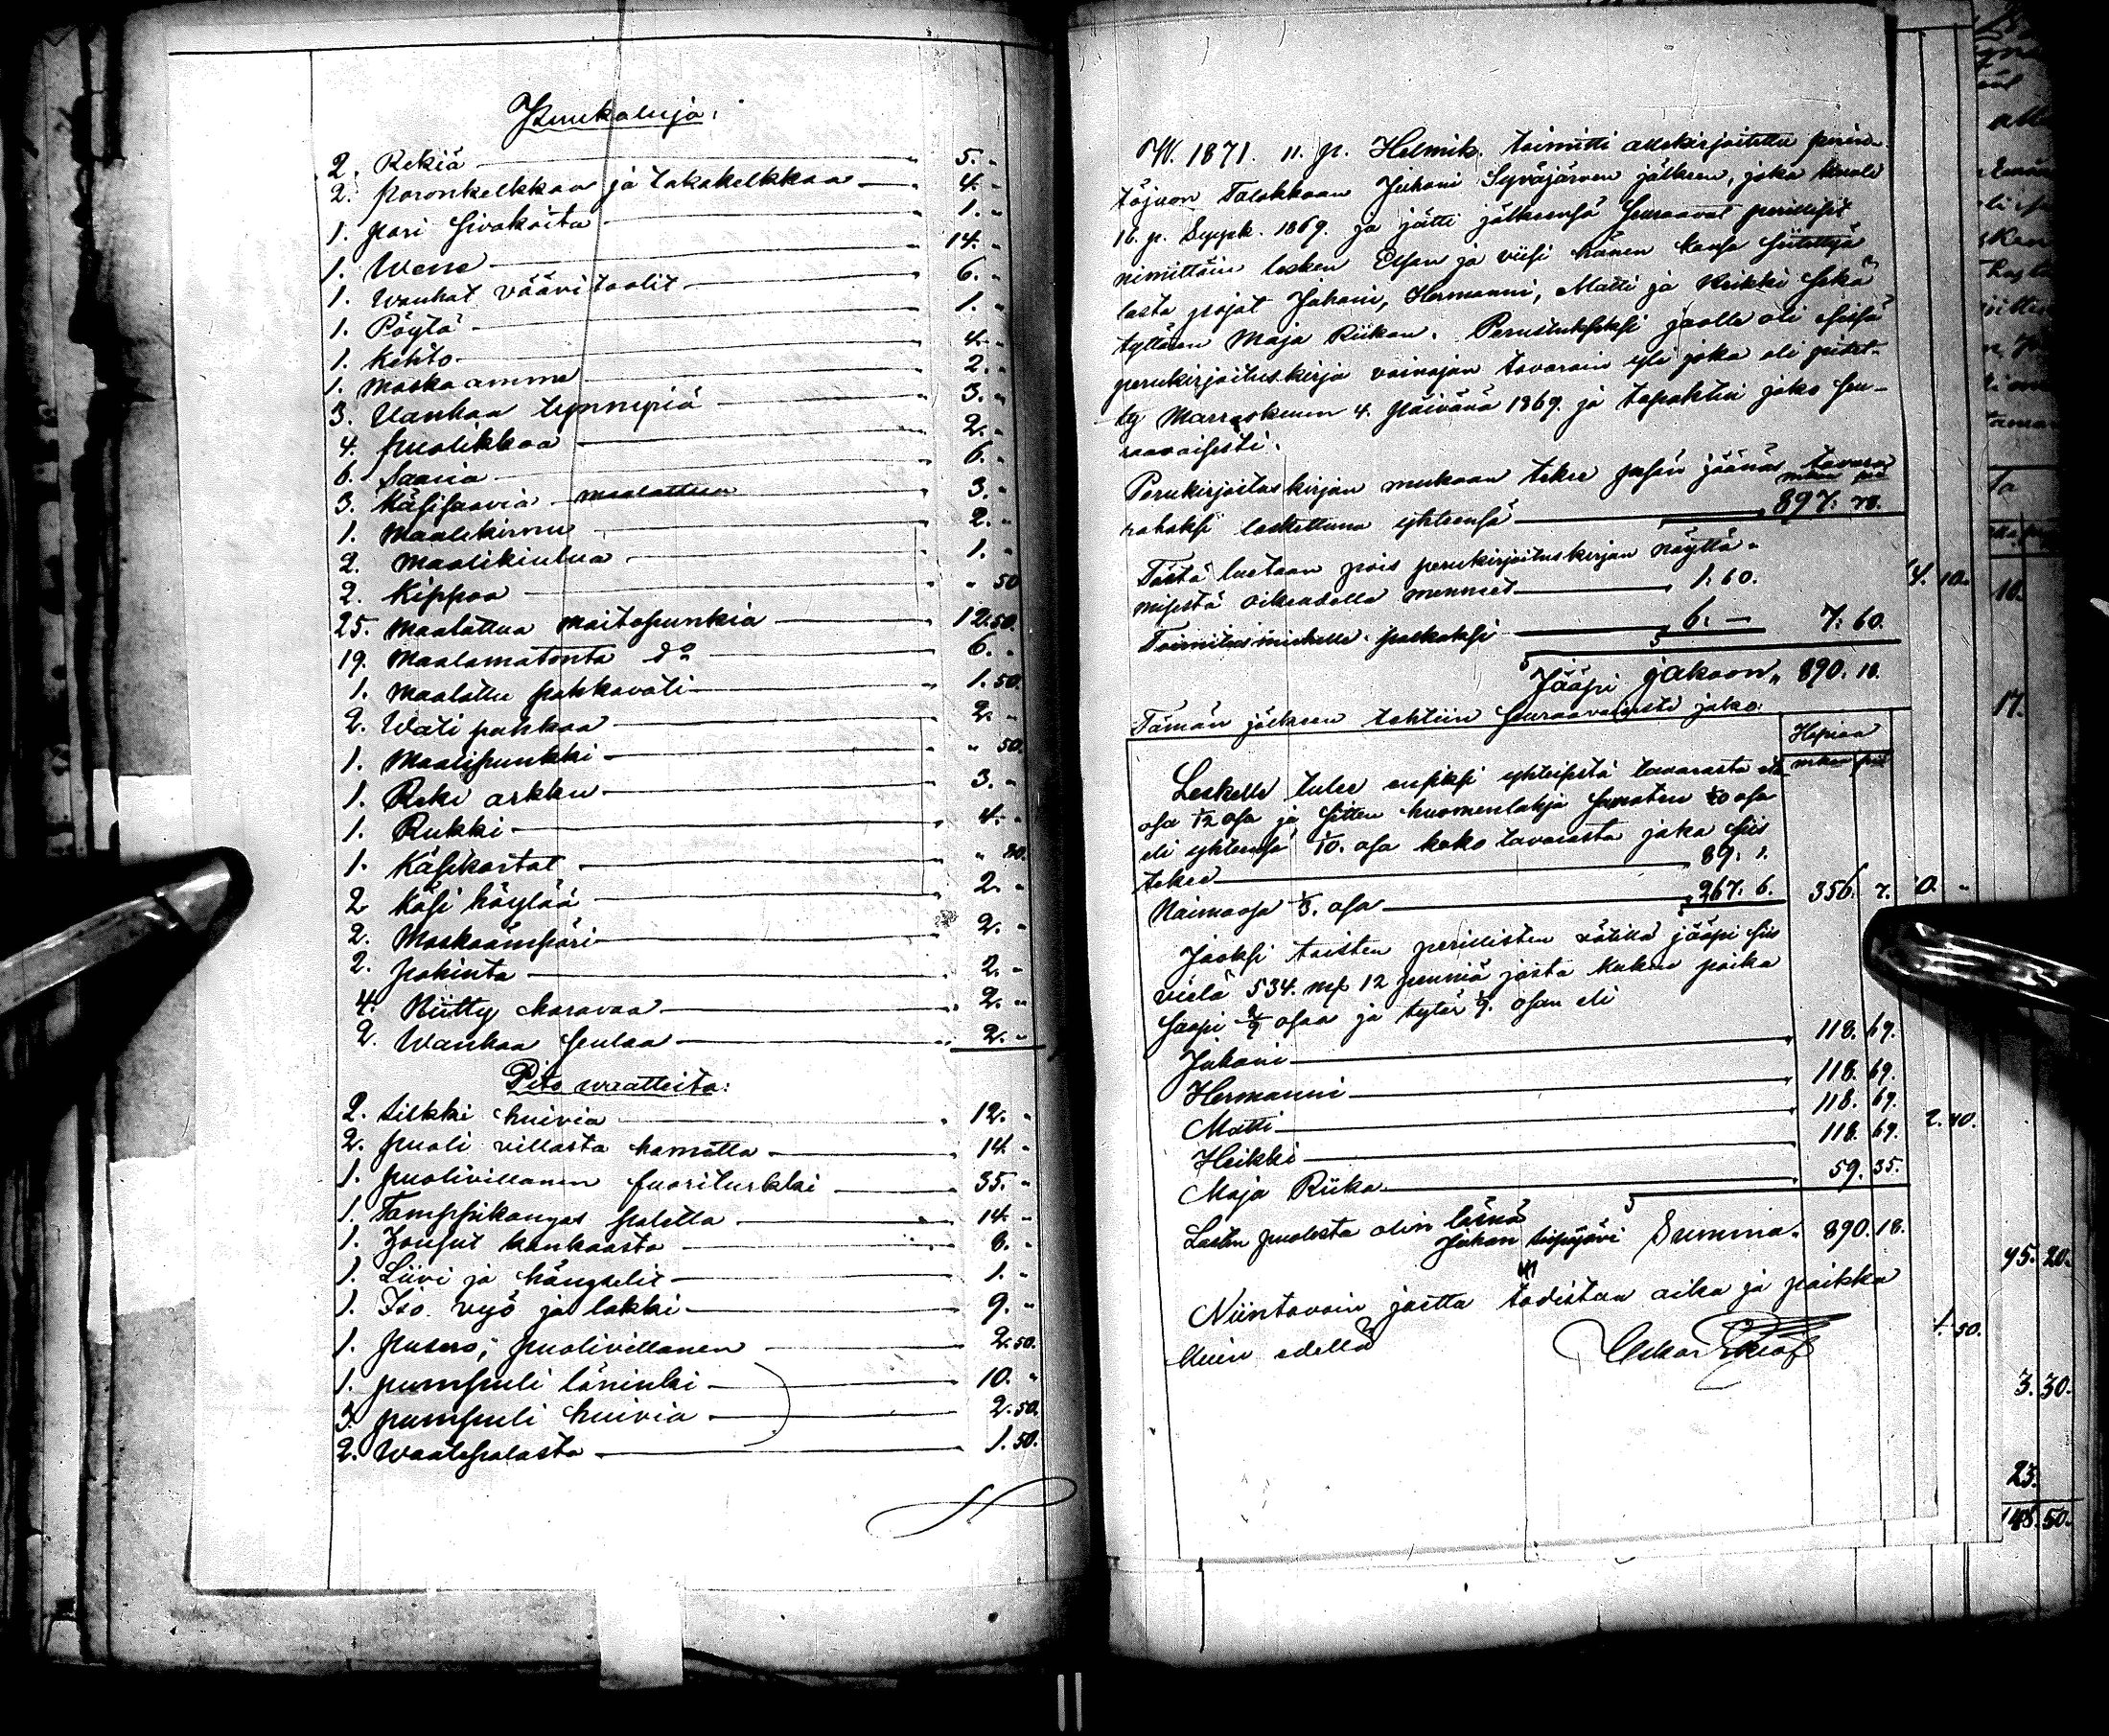 Puukaluja:
2. Rekiä 5. "
2. poronkelkkaa ja takakelkkaa 4. "
1. pari sivakoita 1. "
1. Wene 14. "
1. Wanhat vääritoolit 6. "
1. Pöytä 1. "
1. Kehto 4. "
1. Maska amme 2. "
3. Vanhaa tynnyriä 3. "
4. puolikkoa 2. "
6. Saavia 6. "
3. Käsisaavia maalattua 3. "
1. Maalikirnu 2. "
2. Maalikiulua 1. "
2. Kippoa " 50
25. Maalattua Maitopunkia 12.50.
19. Maalamatonta do 6. "
1. Maalattu pahkavati 1.50.
2. Wati pahkaa 2. "
1. Maalipunkki " 50.
1. Reki arkku 3. "
1. Rukki 4. "
1. Käsikartat " 80.
2 Käsi höylää 2. "
2. Maskaämpäri 2. "
2. pakinta 2. "
4. Niitty haravaa 2. "
2. Wanhaa seulaa 2. "
Pito waatteita:
2. silkki huivia 12. "
2. puoli villasta hametta 14. "
1. puolivillanen fuoriturkki 35. "
1. Tamppikangas paletta 14. "
1. Housut kankaasta 8. "
1. Liivi ja hängselit 1. "
1. Iso vyö ja lakki 9. "
1. pusero, puolivillanen 2.50.
1. pumpuli läninki 10. "
3. pumpuli huivia 2.50.
2. Waatepalasta 1.50.
W. 1871. 11. p. Helmik. toimitti allekirjoitettu perin-
töjaon Talokkaan Juhani Syväjärven jälkeen, joka kuoli
16. p. Syysk. 1869. ja jätti jälkeensä seuraavat perilliset
nimittäin lesken Elsan ja viisi hänen kansa siitettyä
lasta pojat Juhani, Hermanni, Matti ja Heikki sekä
tyttären Maja Riikan. Perustukseksi jaolle oli esissä
perukirjoituskirja vainajan tavarain yli joka oli pidet-
ty Marraskuun 4. päivänä 1869. ja tapahtui jako seu-
raavaisesti.
Perukirjoituskirjan mukaan tekee pesän jäänös tavara
rahaksi laskettuna yhteensä 897. 78.
Tästä luetaan pois perukirjoituskirjan näyttä-
misestä oikeudelle mennest 1. 60.
Toimitusmiehelle palkaksi 6. — 7. 60.
Jääpi jakoon " 890. 18.
Tämän jälkeen tehtiin seuraavaisesti jako:
Hopiaa
Leskelle tulee ensiksi yhteisestä tavarasta
osa 1/12 osa ja sitten huomenlahja
eli yhteensä 1/10. osa koko tavarasta joka siis
tekee 89. 1.
Naimaosa 1/3. osa 267. 6. 356. 7.
Jaoksi toisten perillisten välillä jääpi siis
vielä 534. mk 12 penniä josta kukin poika
saapi 2/9 osaa ja tytär 1/9. osan eli
Juhani 118. 69.
Hermanni 118. 69.
Matti 118. 69.
Heikki 118. 69.
Maja Riika 59. 35.
Lasten puolesta olin läsnä
Juhan Summa. 890. 18.
Niintavoin jaetta todistaa aika ja paikka
kuin edellä
Oskar
4. 10.
0. "
2. 40.
1. 50.
10.
17.
95. 20.
3. 30.
23.
148. 50.